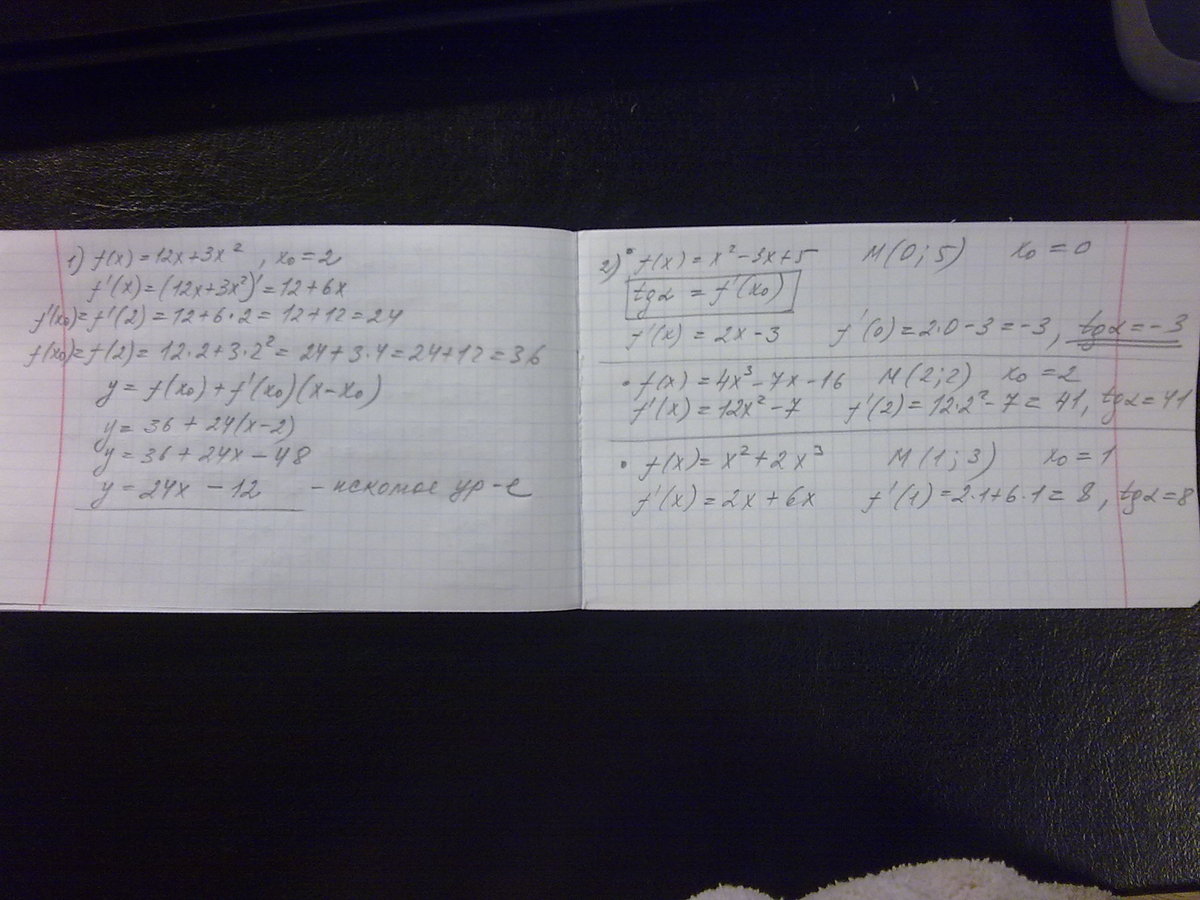 1) f(x) = 12x+3x², x₀ = 2
f'(x) = (12x+3x²)' = 12+6x
f'(x₀) = f'(2) = 12+6·2 = 12+12 = 24
f(x₀) = f(2) = 12·2+3·2² = 24+3·4 = 24+12 = 36
y = f(x₀) + f'(x₀)(x-x₀)
y = 36 + 24(x-2)
y = 36 + 24x - 48
y = 24x - 12 - искомое ур-е
2) • f(x) = x² - 3x + 5 M(0; 5) x₀ = 0
tgα = f'(x₀)
f'(x) = 2x - 3 f'(0) = 2·0 - 3 = -3, tgα = -3
• f(x) = 4x³ - 7x - 16 M(2; 2) x₀ = 2
f'(x) = 12x² - 7 f'(2) = 12·2² - 7 = 41, tgα = 41
• f(x) = x² + 2x³ M(1; 3) x₀ = 1
f'(x) = 2x + 6x f'(1) = 2·1+6·1 = 8, tgα = 8